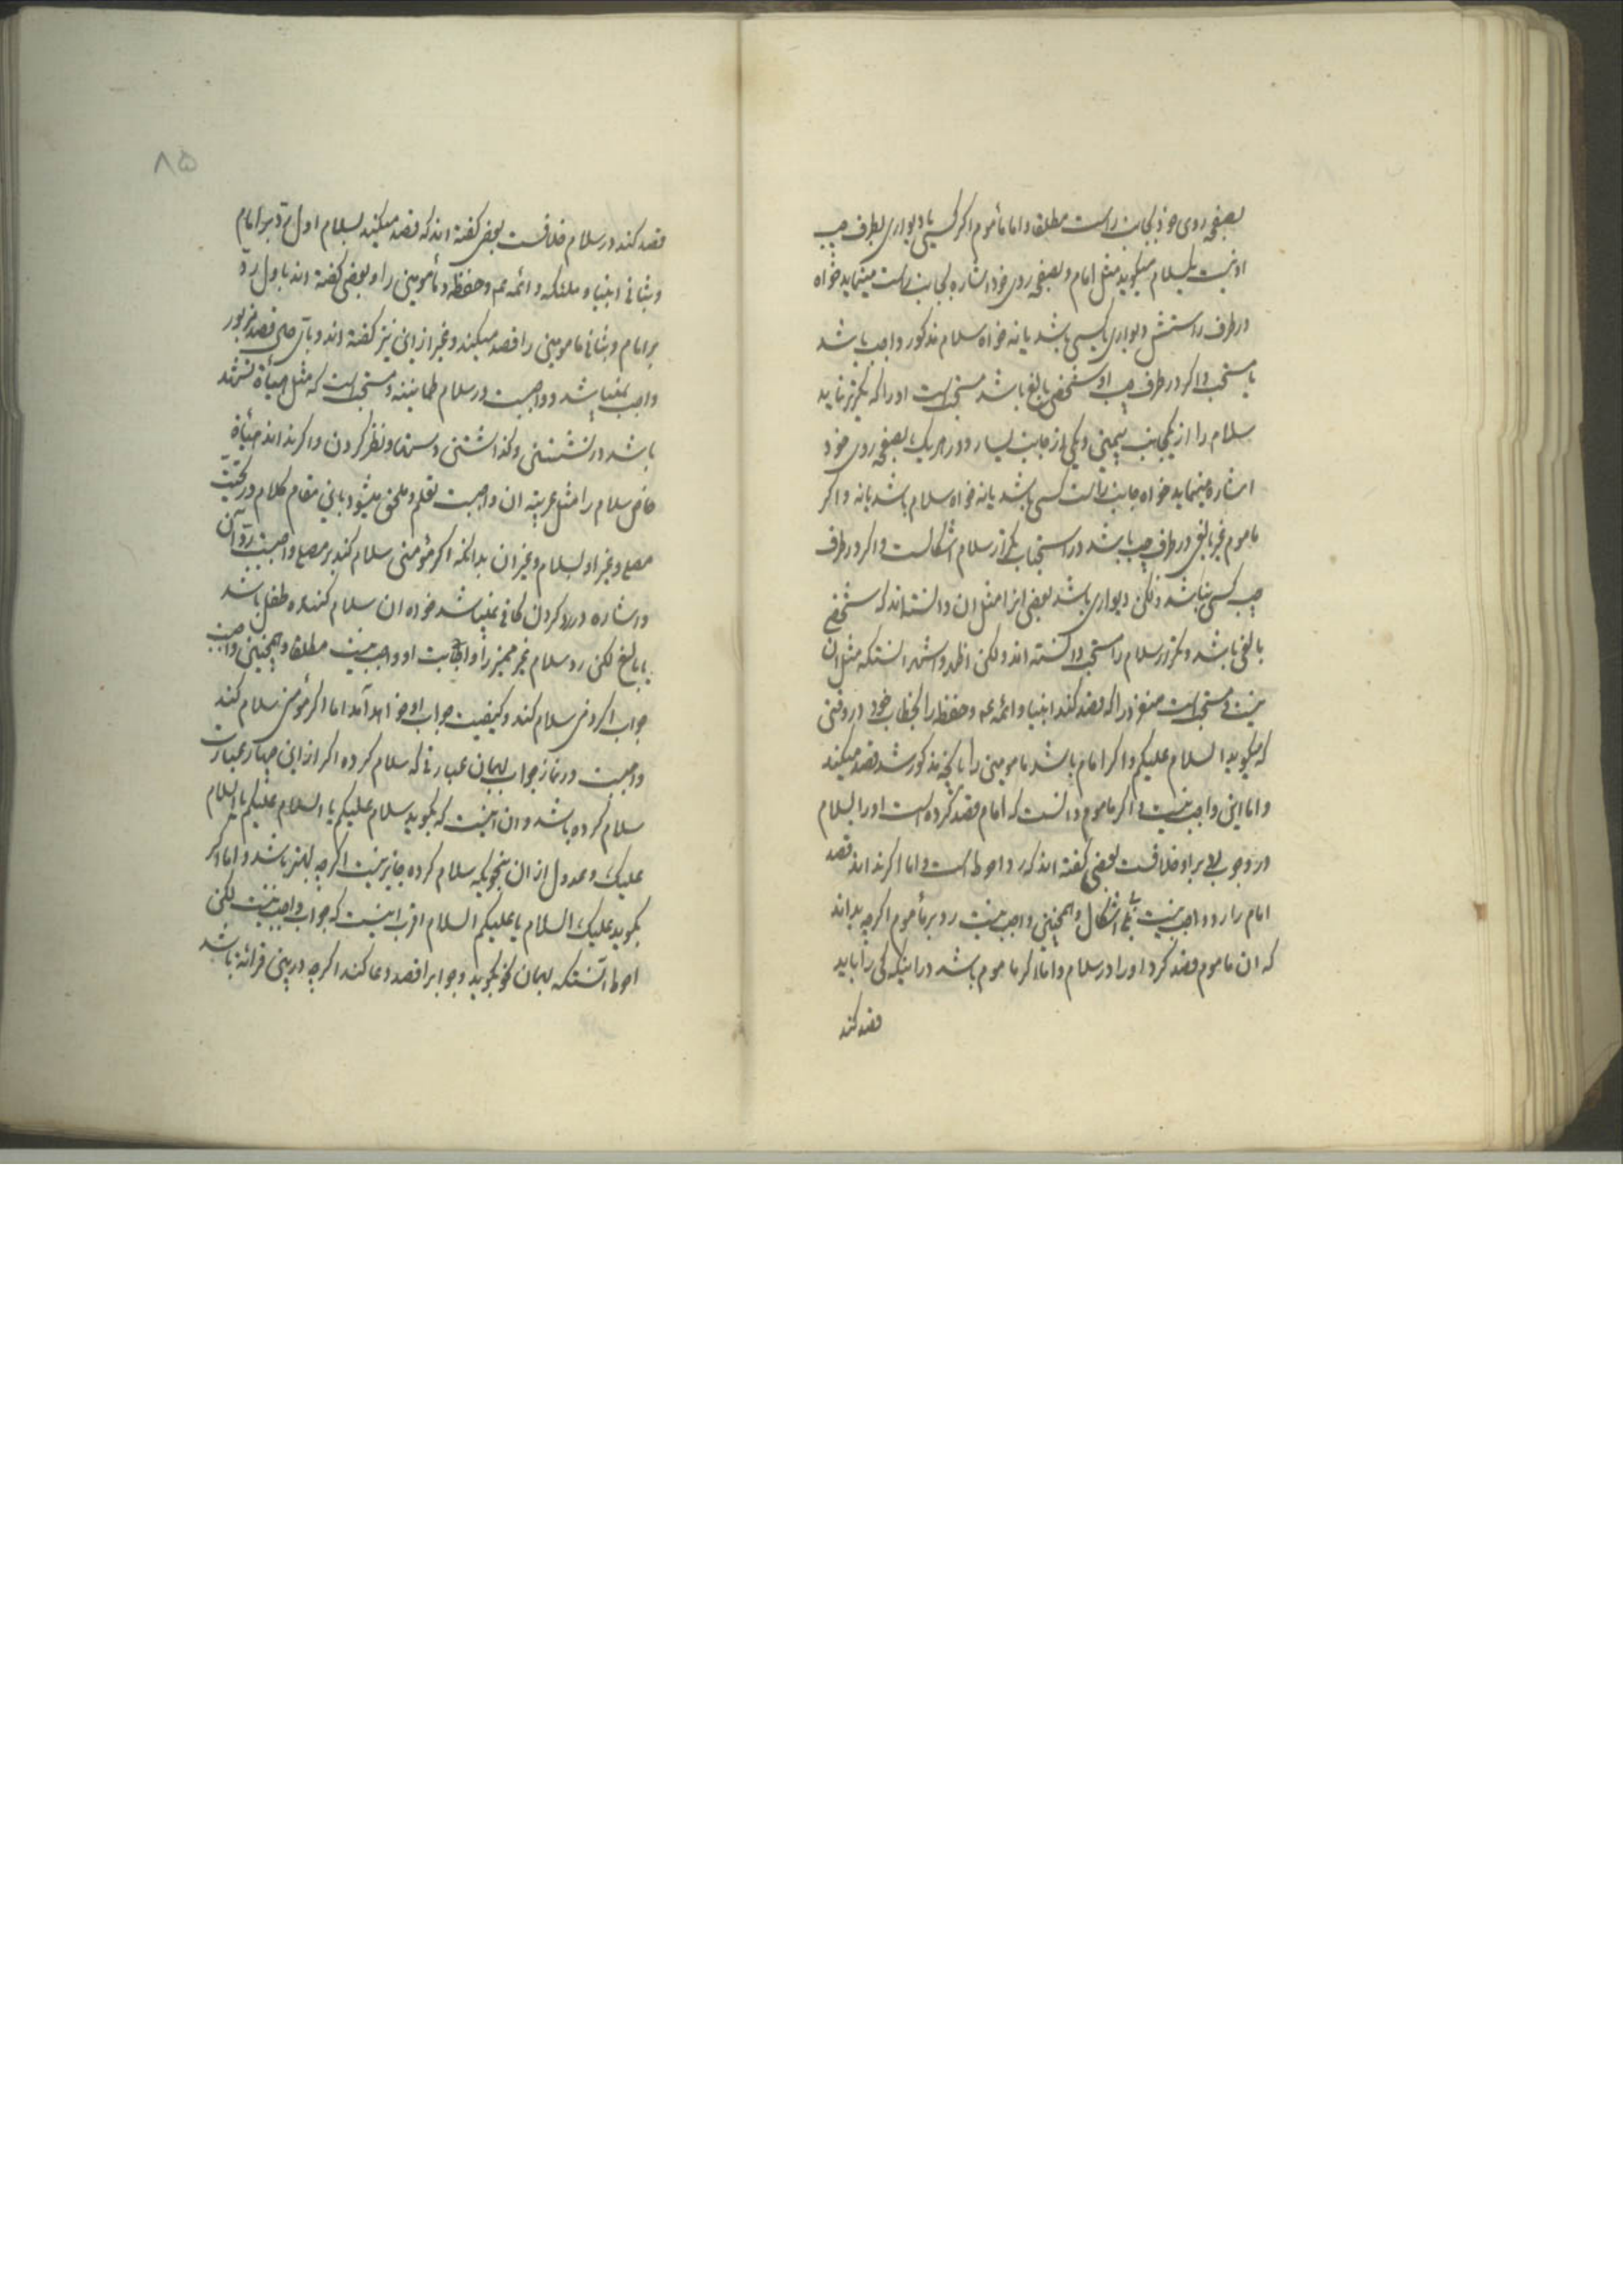 بصفحه روی خود بجانب راست مطلقا و اما مأموم اگر کسی یا دیواری بطرف چپ
او نیست یکسلام میگوید مثل امام و بصفحه روی خود اشاره بجانب راست مینماید خواه
در طرف راستش دیواری یا کسی باشد یا نه خواه سلام مذکور واجب باشد
یا مستحب و اگر در طرف چپ او شخصی بالغ باشد مستحب است او را که تکریر نماید
سلام را از یکجانب یمین و یکی از جانب یسار و در هر یک بصفحه روی خود
اشاره مینماید خواه جانب راست کسی باشد یا نه خواه سلام باشد یا نه و اگر
ماموم غیر بالغی در طرف چپ باشد در استحباب تکرار سلام اشکالست و اگر در طرف
چپ کسی نباشد ولکن دیواری باشد بعضی انرا مثل ان دانسته‌اند که شخصی
بالغی باشد و تکرار سلام را مستحب دانسته اند ولکن اظهر و اشهر انستکه مثل ان
نیست و مستحب است منفرد را که قصد کند انبیا و ائمه عم و حفظه را بخطاب خود در وقتی
که میگوید السلام علیکم و اگر امام باشد مامومین را با انچه مذکور شد قصد میکند
و اما این واجب نیست و اگر ماموم دانست که امام قصد کرده است او را بسلام
در وجوب بر او خلافست بعضی گفته اند که رد احوط است و اما اگر نداند قصد
امام را رد واجب نیست بی اشکال و همچنین واجب نیست رد بر مأموم اگرچه بداند
که ان ماموم قصد کرد او را در سلام و اما اگر ماموم باشد در اینکه کی را باید
قصد کند
۸۵
قصد کند در سلام خلافست بعضی گفته اند که قصد میکند بسلام اول رد بر امام
و بثانی انبیا و ملئکه و ائمه عم و حفظه و مأمومین را و بعضی گفته اند باول رد
بر امام و بثانی مامومین را قصد میکند و غیر از این نیز گفته اند و بای حال قصد مزبور
واجب نمیباشد و واجبست در سلام طمانینه و مستحب است که مثل هیأة تشهد
باشد در نشستن و گذاشتن دستها و نظر کردن و اگر نداند هیأة
خاص سلام را مثل عربیة ان واجبست تعلم و ملحق میشود باین مقام کلام در تحیت
مصلی و غیر او بسلام و غیر ان بدانکه اگر مؤمنی سلام کند بر مصلی واجبست رد آن
و اشاره در رد کردن کافی نمیباشد خواه ان سلام کننده طفل باشد
یا بالغ لکن رد سلام غیر ممیز را و اجابت او واجب نیست مطلقا و همچنین واجب
جواب اگر سلام کند و کیفیت جواب او خواهد آمد اما اگر مؤمنی سلام کند
واجبست در نماز جواب بهمان عبارتی که سلام کرده اگر از این چهار عبارت
سلام کرده باشد و ان اینست که بگوید سلام علیکم یا السلام علیکم یا السلام
علیک و عدول از ان بنحویکه سلام کرده جایز نیست اگرچه بهتر باشد و اما اگر
بگوید علیک السلام یا علیکم السلام اقرب اینست که جواب واجب نیست لکن
احوط آنستکه بهمان نحو بگوید و جوابرا قصد دعا کند اگرچه در بین قرائة باشد